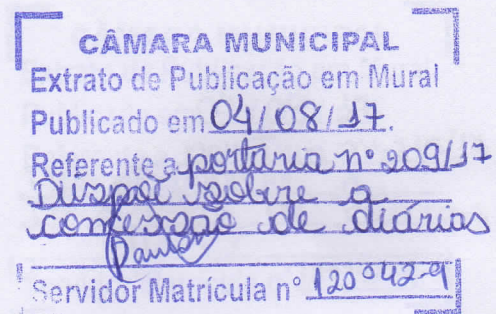 CÂMARA MUNICIPAL
Extrato de Publicação em Mural
Publicado em 04/08/17.
Referente a portaria nº 209/17
Dispõe sobre a
concessão de diárias
Servidor Matrícula nº 120042-9